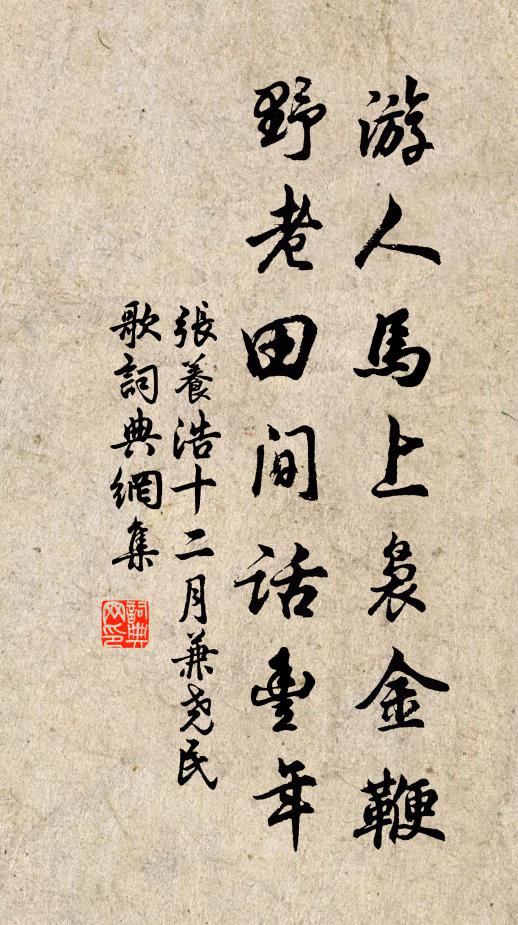 游人馬上裊金鞭
野老田間話豐年
張養浩十二月兼堯民
歌詞典網集
詞典
网印